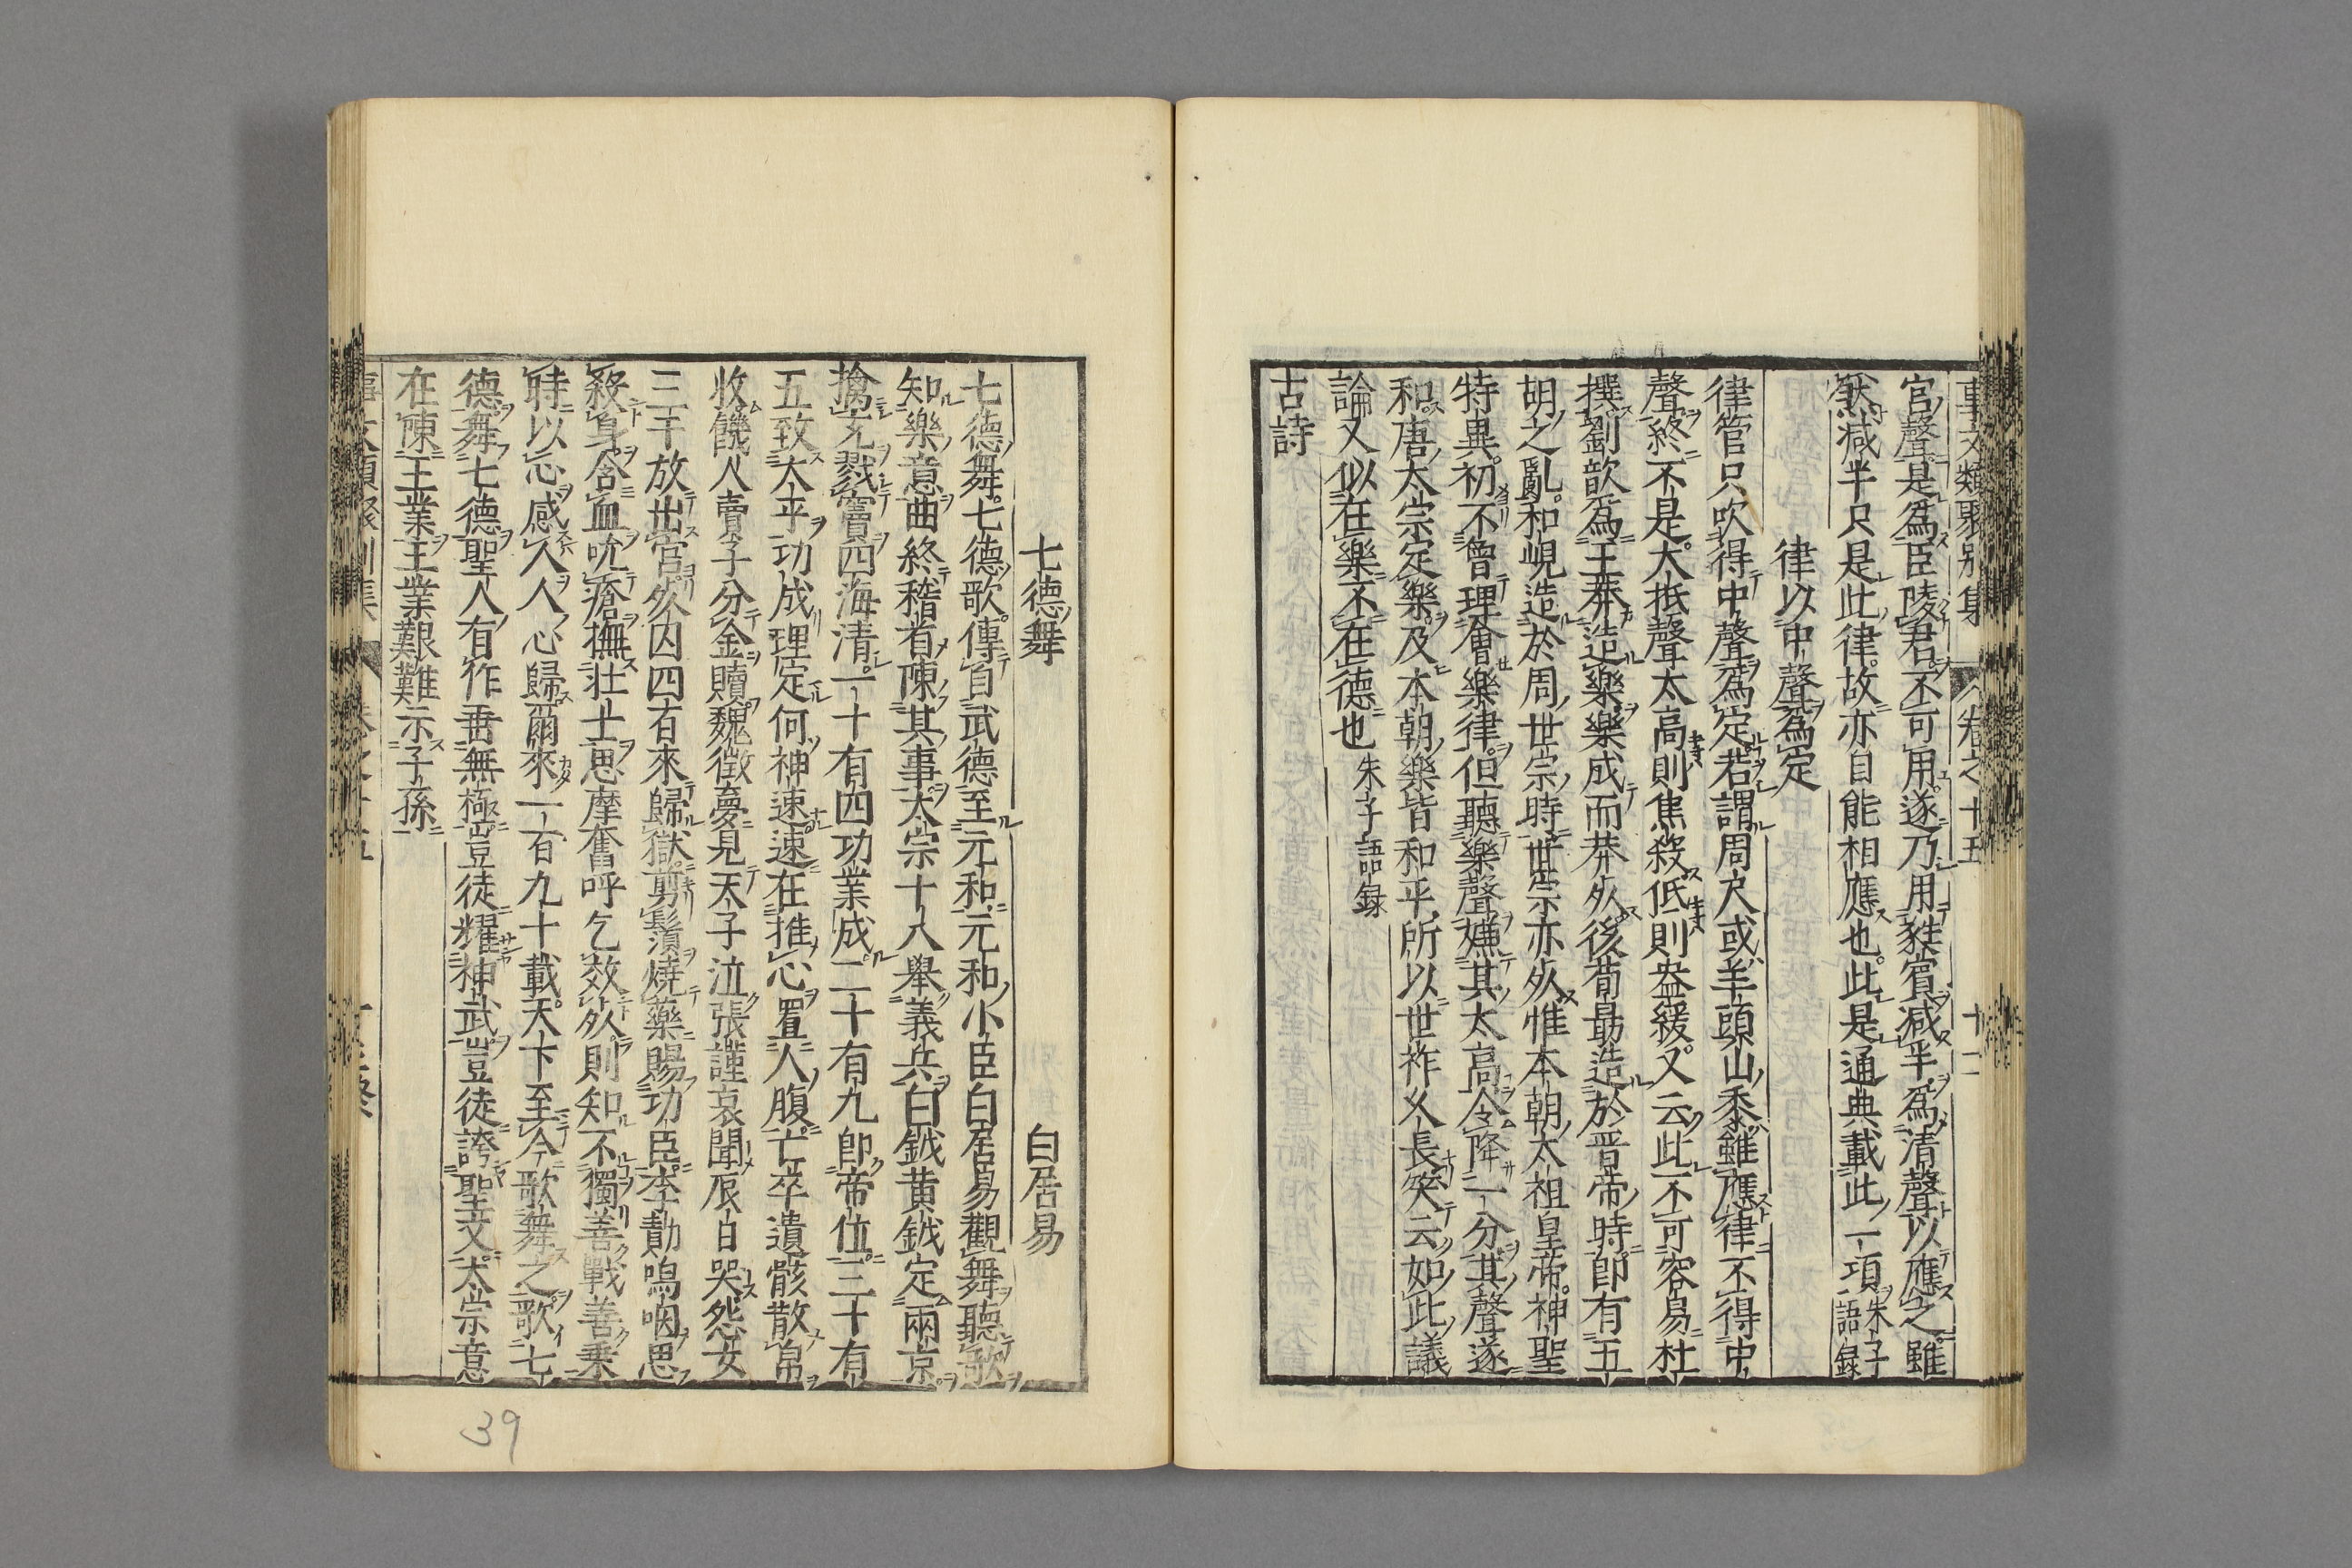 事文類聚別集 卷之十五 十二
宮聲是爲臣陵君不可用遂乃用蕤賓減半爲清聲以應之雖
然減半只是此律故亦自能相應也此是通典載此一項朱子語録
律以中聲爲定
律管只吹得中聲爲定若謂周尺或羊頭山黍雖應律不得中
聲終不是大抵聲太高則焦殺低則盎緩又云此不可容易杜
撰劉歆爲王莽造樂樂成而莽死後荀勗造於晋帝時即有五
胡之亂和峴造於周世宗時世宗亦死惟本朝太祖皇帝神聖
特異初不曾理會樂律但聽樂聲嫌其太高令降一分其聲遂
和唐太宗定樂及本朝樂皆和平所以世祚久長笑云如此議
論又似在樂不在德也朱子語録
古詩
七德舞 白居易
七德舞七德歌傳自武德至元和元和小臣白居易觀舞聽歌
知樂意曲終稽首陳其事太宗十八舉義兵白鉞黄鉞定兩京
擒充戮竇四海清二十有四功業成二十有九即帝位三十有
五致太平功成理定何神速速在推心置人腹亡卒遺骸散帛
收饑人賣子分金贖魏徴夢見天子泣張謹哀聞辰日哭怨女
三千放出宮死囚四百來歸獄剪鬚燒藥賜功臣李勣嗚咽思
殺身含血吮瘡撫壮士思摩奮呼乞效死則知不獨善戰善乗
時以心感人人心歸爾來一百九十載天下至今歌舞之歌七
德舞七德聖人有作垂無極豈徒耀神武豈徒誇聖文太宗意
在陳王業王業艱難示子孫
39